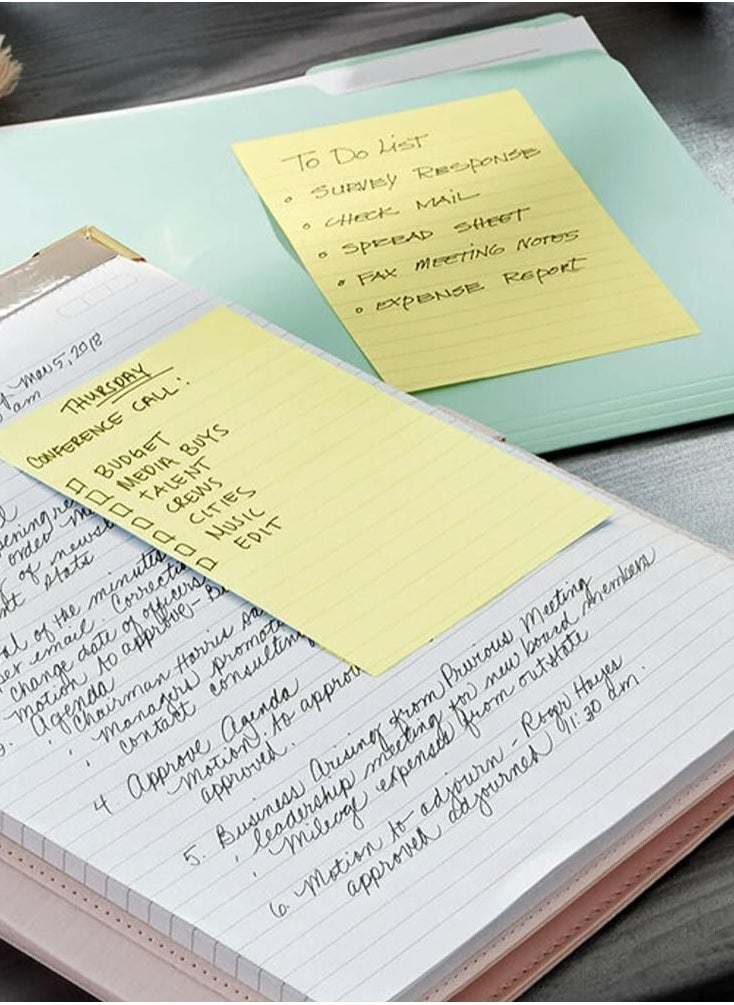 To Do List
• Survey Response
• Check Mail
• Spread Sheet
• Fax Meeting Notes
• Expense Report
Mar 5, 2018
am
Thursday
Conference Call:
☐ Budget
☐ Media Buys
☐ Talent
☐ Crews
☐ Cities
☐ Music
☐ Edit
order
of news
stats
of the minutes
email. Correction
change date of officers
motion to approve -
Agenda
Chairman Harris
Managers promot
contact consulting
4. Approve Agenda
motion to approv
approved.
5. Business Arising from Previous Meeting
leadership meeting for new board members
Mileage expenses from outstate
6. Motion to adjourn - Roger Hayes
approved adjourned 11:30 am.